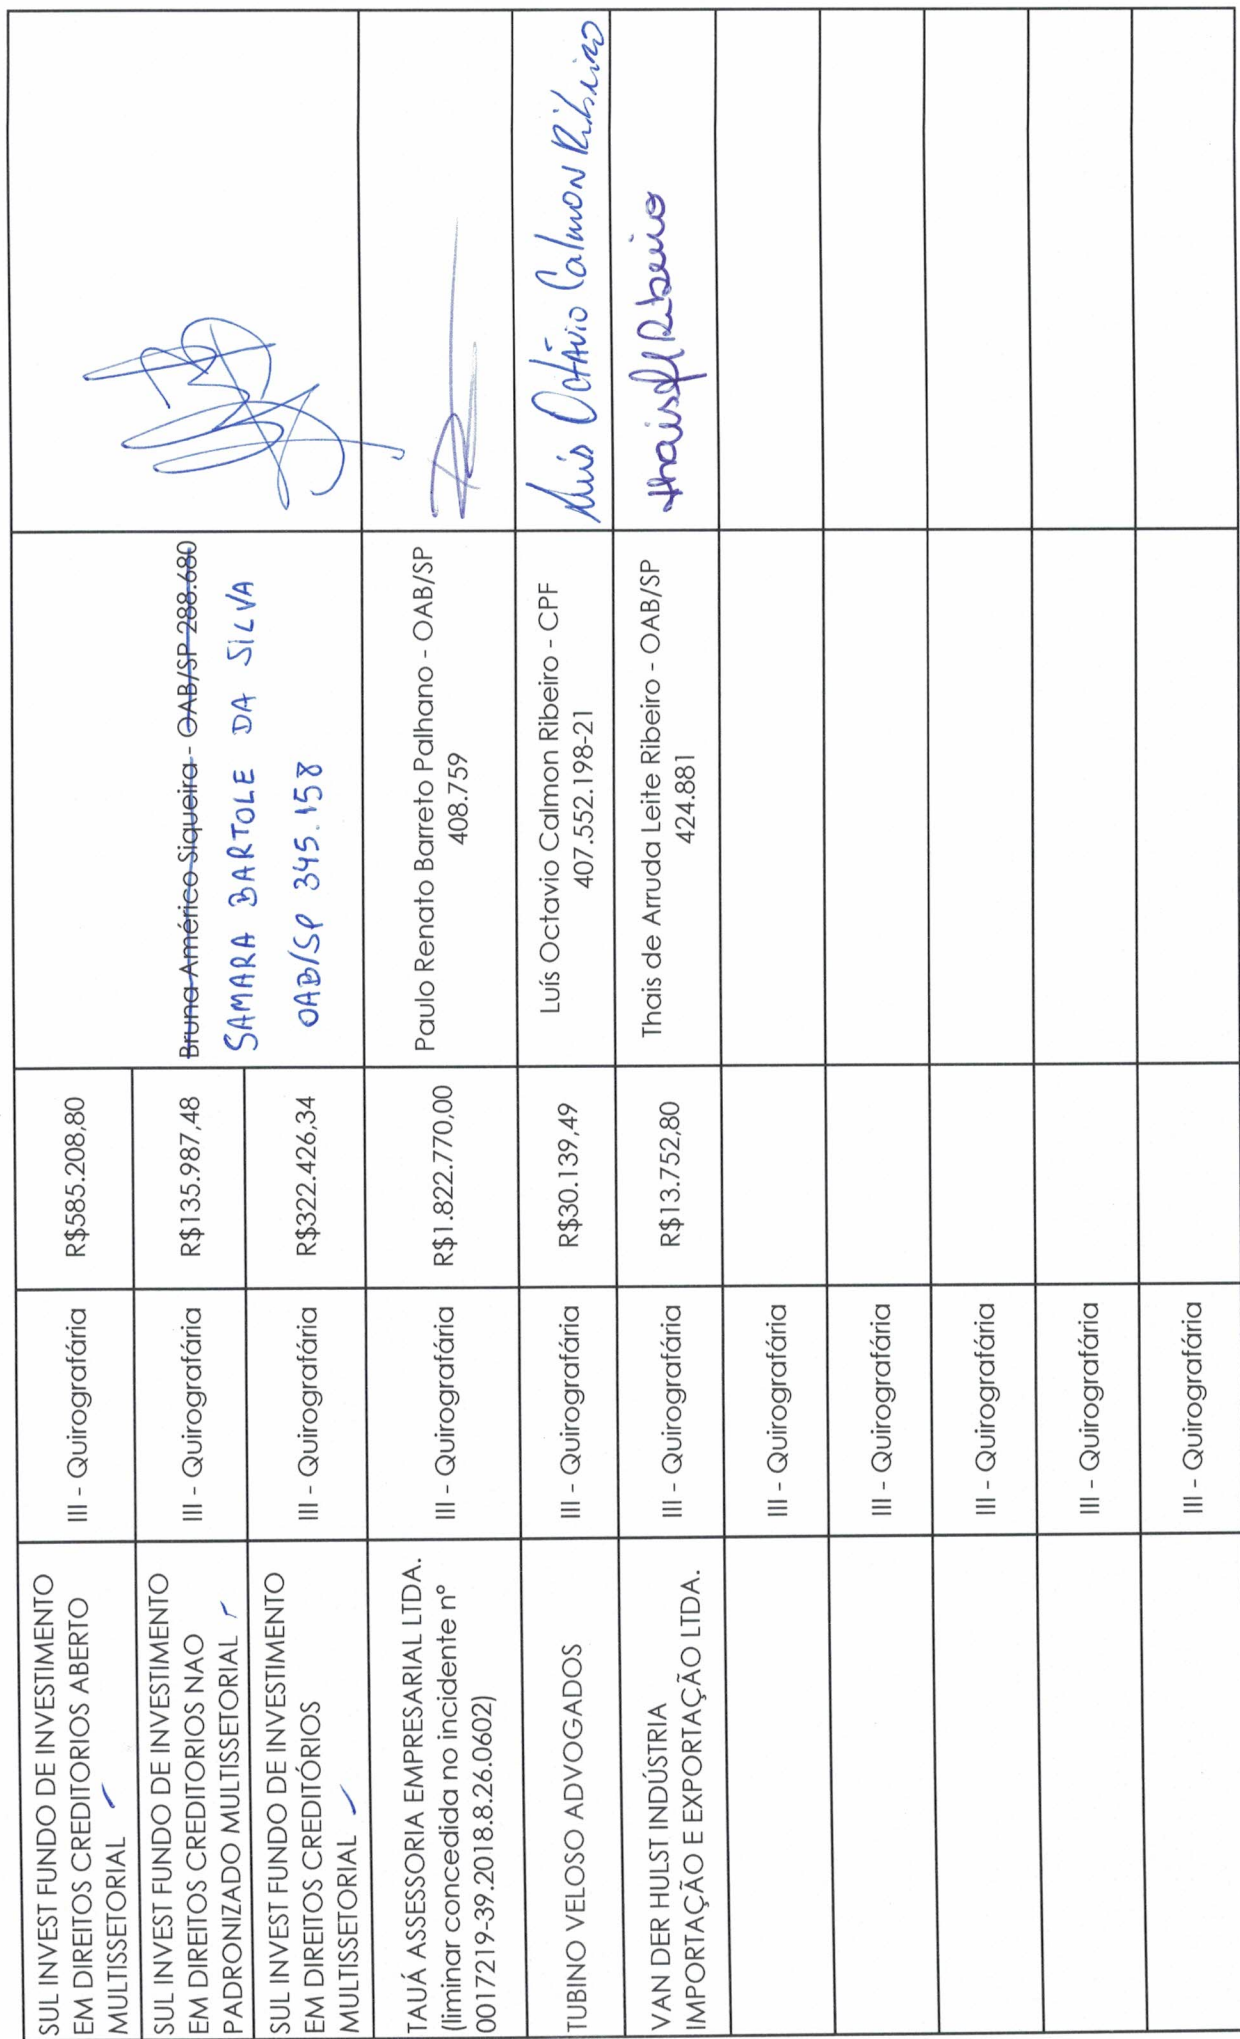 SUL INVEST FUNDO DE INVESTIMENTO
EM DIREITOS CREDITORIOS ABERTO
MULTISSETORIAL
III - Quirografária
R$585.208,80
SUL INVEST FUNDO DE INVESTIMENTO
EM DIREITOS CREDITORIOS NAO
PADRONIZADO MULTISSETORIAL
III - Quirografária
R$135.987,48
Bruna Américo Siqueira - OAB/SP 288.680
SAMARA BARTOLE DA SILVA
OAB/SP 345.158
SUL INVEST FUNDO DE INVESTIMENTO
EM DIREITOS CREDITÓRIOS
MULTISSETORIAL
III - Quirografária
R$322.426,34
TAUÁ ASSESSORIA EMPRESARIAL LTDA.
(liminar concedida no incidente nº
0017219-39.2018.8.26.0602)
III - Quirografária
R$1.822.770,00
Paulo Renato Barreto Palhano - OAB/SP
408.759
TUBINO VELOSO ADVOGADOS
III - Quirografária
R$30.139,49
Luís Octavio Calmon Ribeiro - CPF
407.552.198-21
Luis Octávio Calmon Ribeiro
VAN DER HULST INDÚSTRIA
IMPORTAÇÃO E EXPORTAÇÃO LTDA.
III - Quirografária
R$13.752,80
Thais de Arruda Leite Ribeiro - OAB/SP
424.881
Ribeiro
III - Quirografária
III - Quirografária
III - Quirografária
III - Quirografária
III - Quirografária